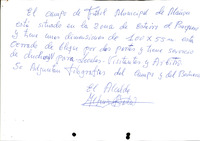 El campo de Fútbol Municipal de
está situado en la Zona de
y tiene unas dimensiones de 100 X 50 m está
Cerrado de bloque por dos partes y tiene servicio
de duchas para Locales, Visitantes y Arbitro
Se Adjuntan fotografías del Campo y del
El Alcalde